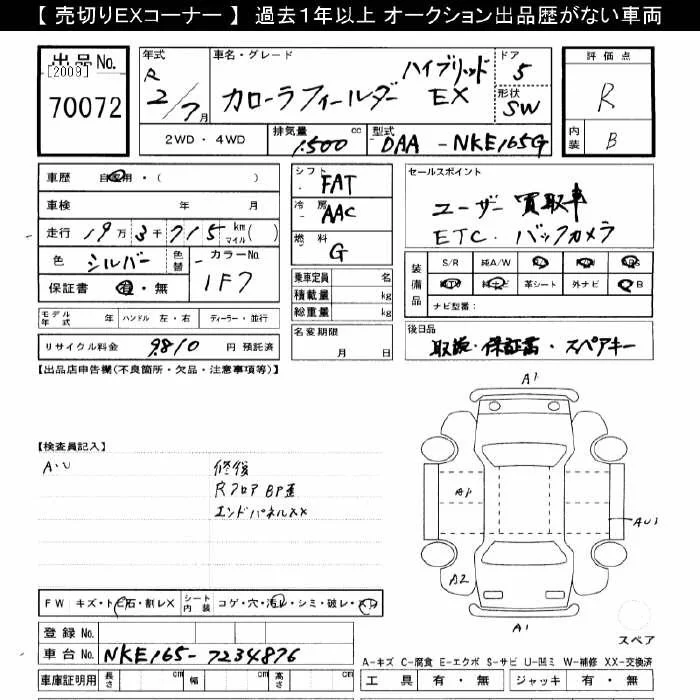 【 売切りEXコーナー 】 過去1年以上 オークション出品歴がない車両
出品No. [2009] 70072
年式 R 2/7月
車名・グレード カローラフィールダー ハイブリッド EX
ドア 5
形状 SW
評価点 R
内装 B
2WD・4WD
排気量 1500 cc
型式 DAA -NKE165G
車歴 自家用・( )
車検 年 月
走行 19万3千715 km マイル ( )
色 シルバー 色替 - カラーNo. 1F7
保証書 有・無
シフト FAT
冷房 AAC
燃料 G
乗車定員 名
積載量 kg
総重量 kg
セールスポイント
ユーザー買取車
ETC. バックカメラ
装備品 S/R 純A/W
純ナビ 革シート 外ナビ B
ナビ型番:
モデル年式 年 ハンドル 左・右 ディーラー・並行
リサイクル料金 9810 円 預託済
名変期限 月 日
後日品
取説・保証書・スペアキー
【出品店申告欄(不良箇所・欠品・注意事項等)】
【検査員記入】
A・U 修後
Rフロア BP歪
エンドパネルXX
A1
A1
AU1
A2
A1
スペア
FW キズ・ト石・割レX シート内装 コゲ・穴・汚レ・シミ・破レ・スレ
登録No.
車台No. NKE165-7234876
A-キズ C-腐食 E-エクボ S-サビ U-凹ミ W-補修 XX-交換済
車庫証明用 長さ cm 幅 cm 高さ cm
工具 有・無 ジャッキ 有・無